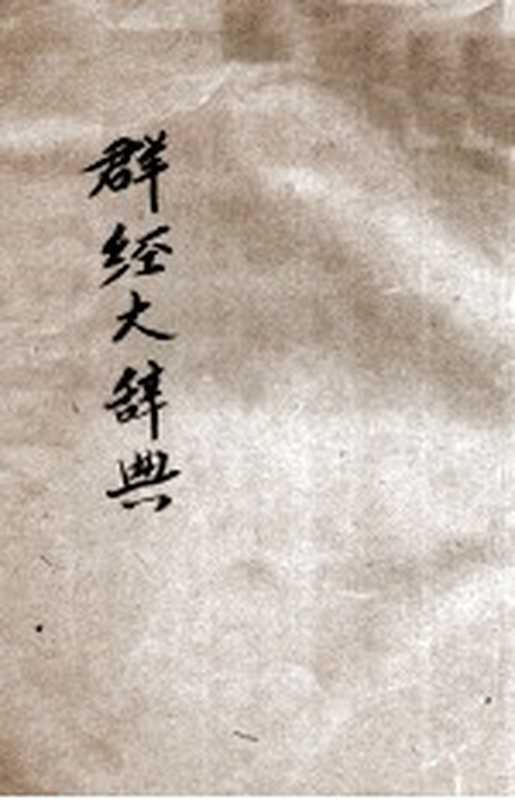 群经大辞典